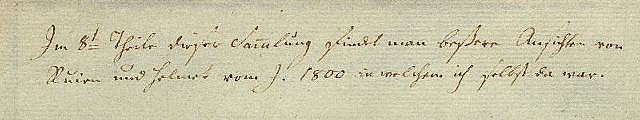 Im 8t Theile dieser Sammlung findet man beßere Ansichten von
und vom J. 1800 in welchem ich selbst da war.